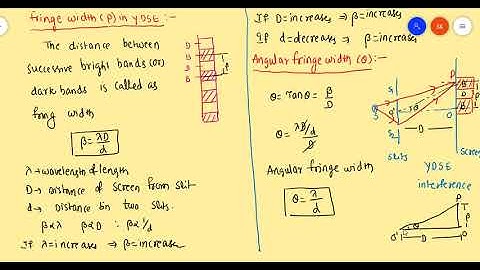 Fringe width (β) in YDSE :-
The distance between
successive bright bands (or)
dark bands is called as
fring width
β = λD/d
λ → wavelength of length
D → Distance of screen from slit
d → Distance b/n two slits.
β ∝ λ β ∝ D ∴ β ∝ 1/d
If λ = increases ⇒ β = increases
D
B
D
B
β
If D = increases ⇒ β = increases
If d = decreases ⇒ β = increases
Angular fringe width (θ) :-
θ = Tanθ = β/D
θ = λD/d / D
Angular fringe width
θ = λ/d
S1
S2
θ
D
P
O
slits
screen
YDSE
interference
P
β
O
θ
D
O'